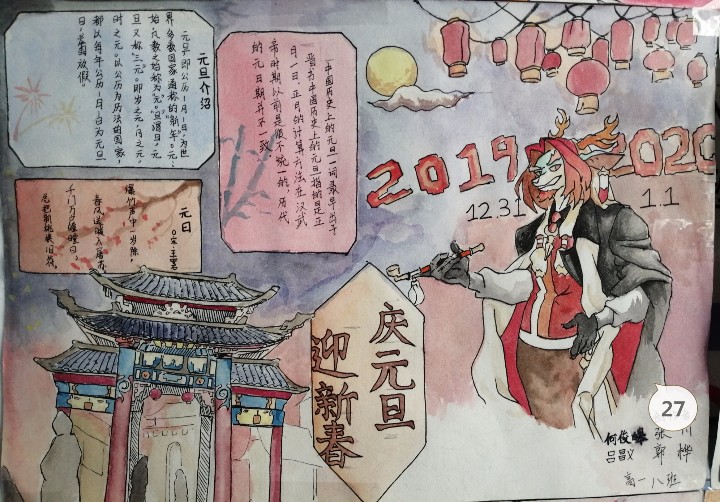 元旦介绍
元旦,即公历1月1日,为世
界多数国家通称的“新年”。元:
始,凡数之始称为“元”。旦谓日,元
旦又称“三元”。即岁之元、月之元、
时之元。以公历为历法的国家,
都以每年公历1月1日为元旦
日,举国放假。
中国历史上的元旦一词最早出于
晋书 中国历史上的元旦指的是正
月一日。正月的计算方法在汉武
帝时期以前是很不统一的,历代
的元旦日期并不一致.
元日
宋·王安石
爆竹声中一岁除,
春风送暖入屠苏.
千门万户曈曈日,
总把新桃换旧符.
2019 2020
12.31 1.1
庆元旦
迎新春
27
何俊
吕昌义
张 川
郭 烨
高一 八班